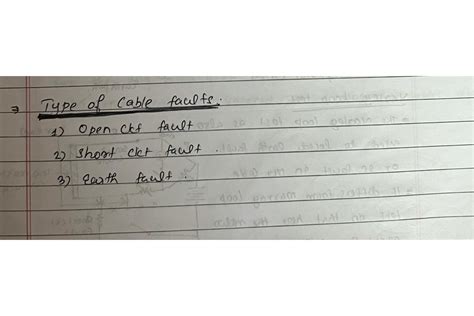 → Type of Cable faults :
1) Open Ckt fault
2) Short ckt fault
3) Earth fault :